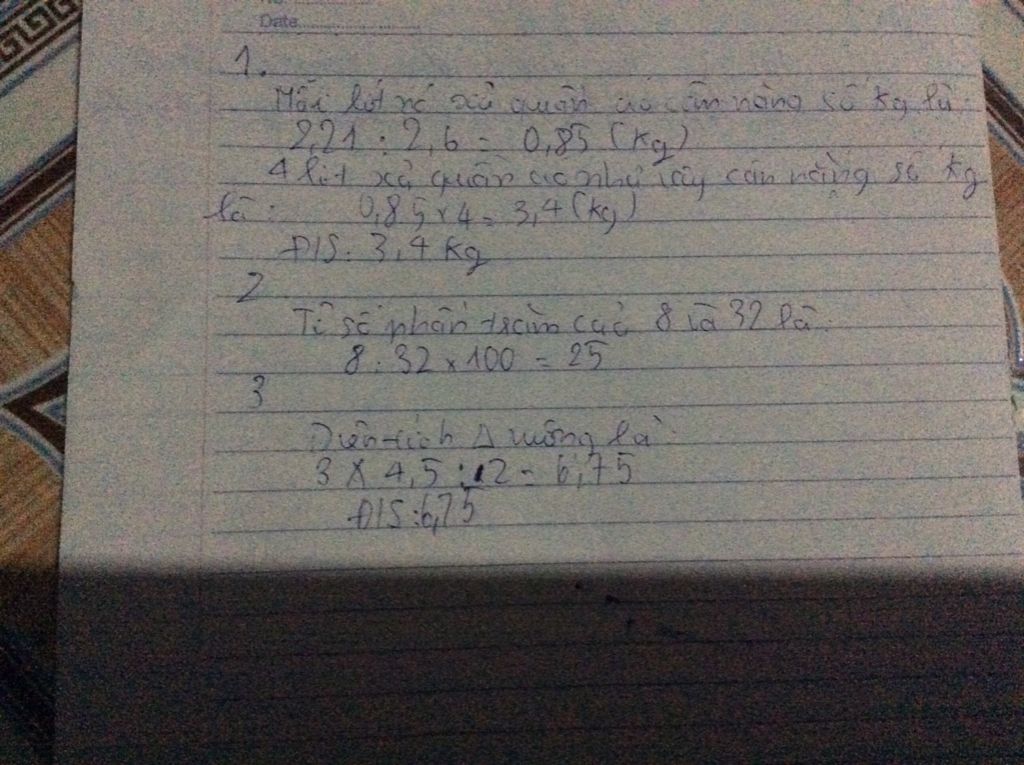 Date
1.
Mỗi lít xả quần áo cân nặng số kg là:
2,21 : 2,6 = 0,85 (kg)
4 lít xả quần áo như vậy cân nặng số kg
là: 0,85 x 4 = 3,4 (kg)
Đ/S: 3,4 kg
2
Tỉ số phần trăm của 8 và 32 là:
8 : 32 x 100 = 25
3
Diện tích Δ vuông là:
3 x 4,5 : 2 = 6,75
Đ/S: 6,75